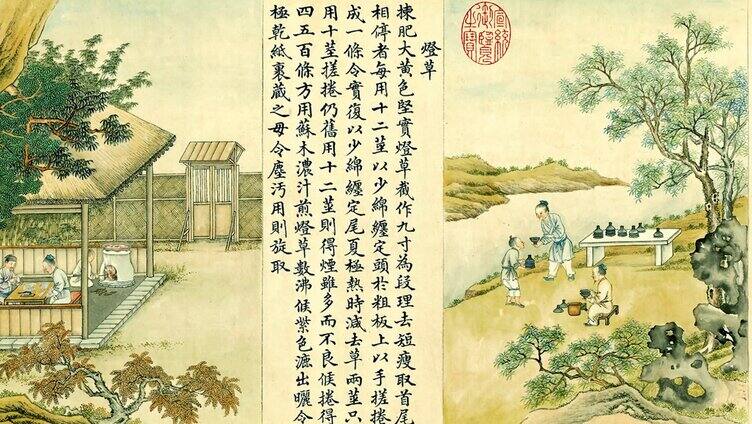 燈草
揀肥大黃色堅實燈草截作九寸為段理去短瘦取首尾
相停者每用十二莖以少綿纏定頭於粗板上以手搓捲
成一條令實復以少綿纏定尾夏極熱時減去草兩莖只
用十莖搓捲仍舊用十二莖則得煙雖多而不良候捲得
四五百條方用蘇木濃汁煎燈草數沸候紫色漉出曬令
極乾紙裹藏之毋令塵汚用則旋取
宣統
御覽
之寶